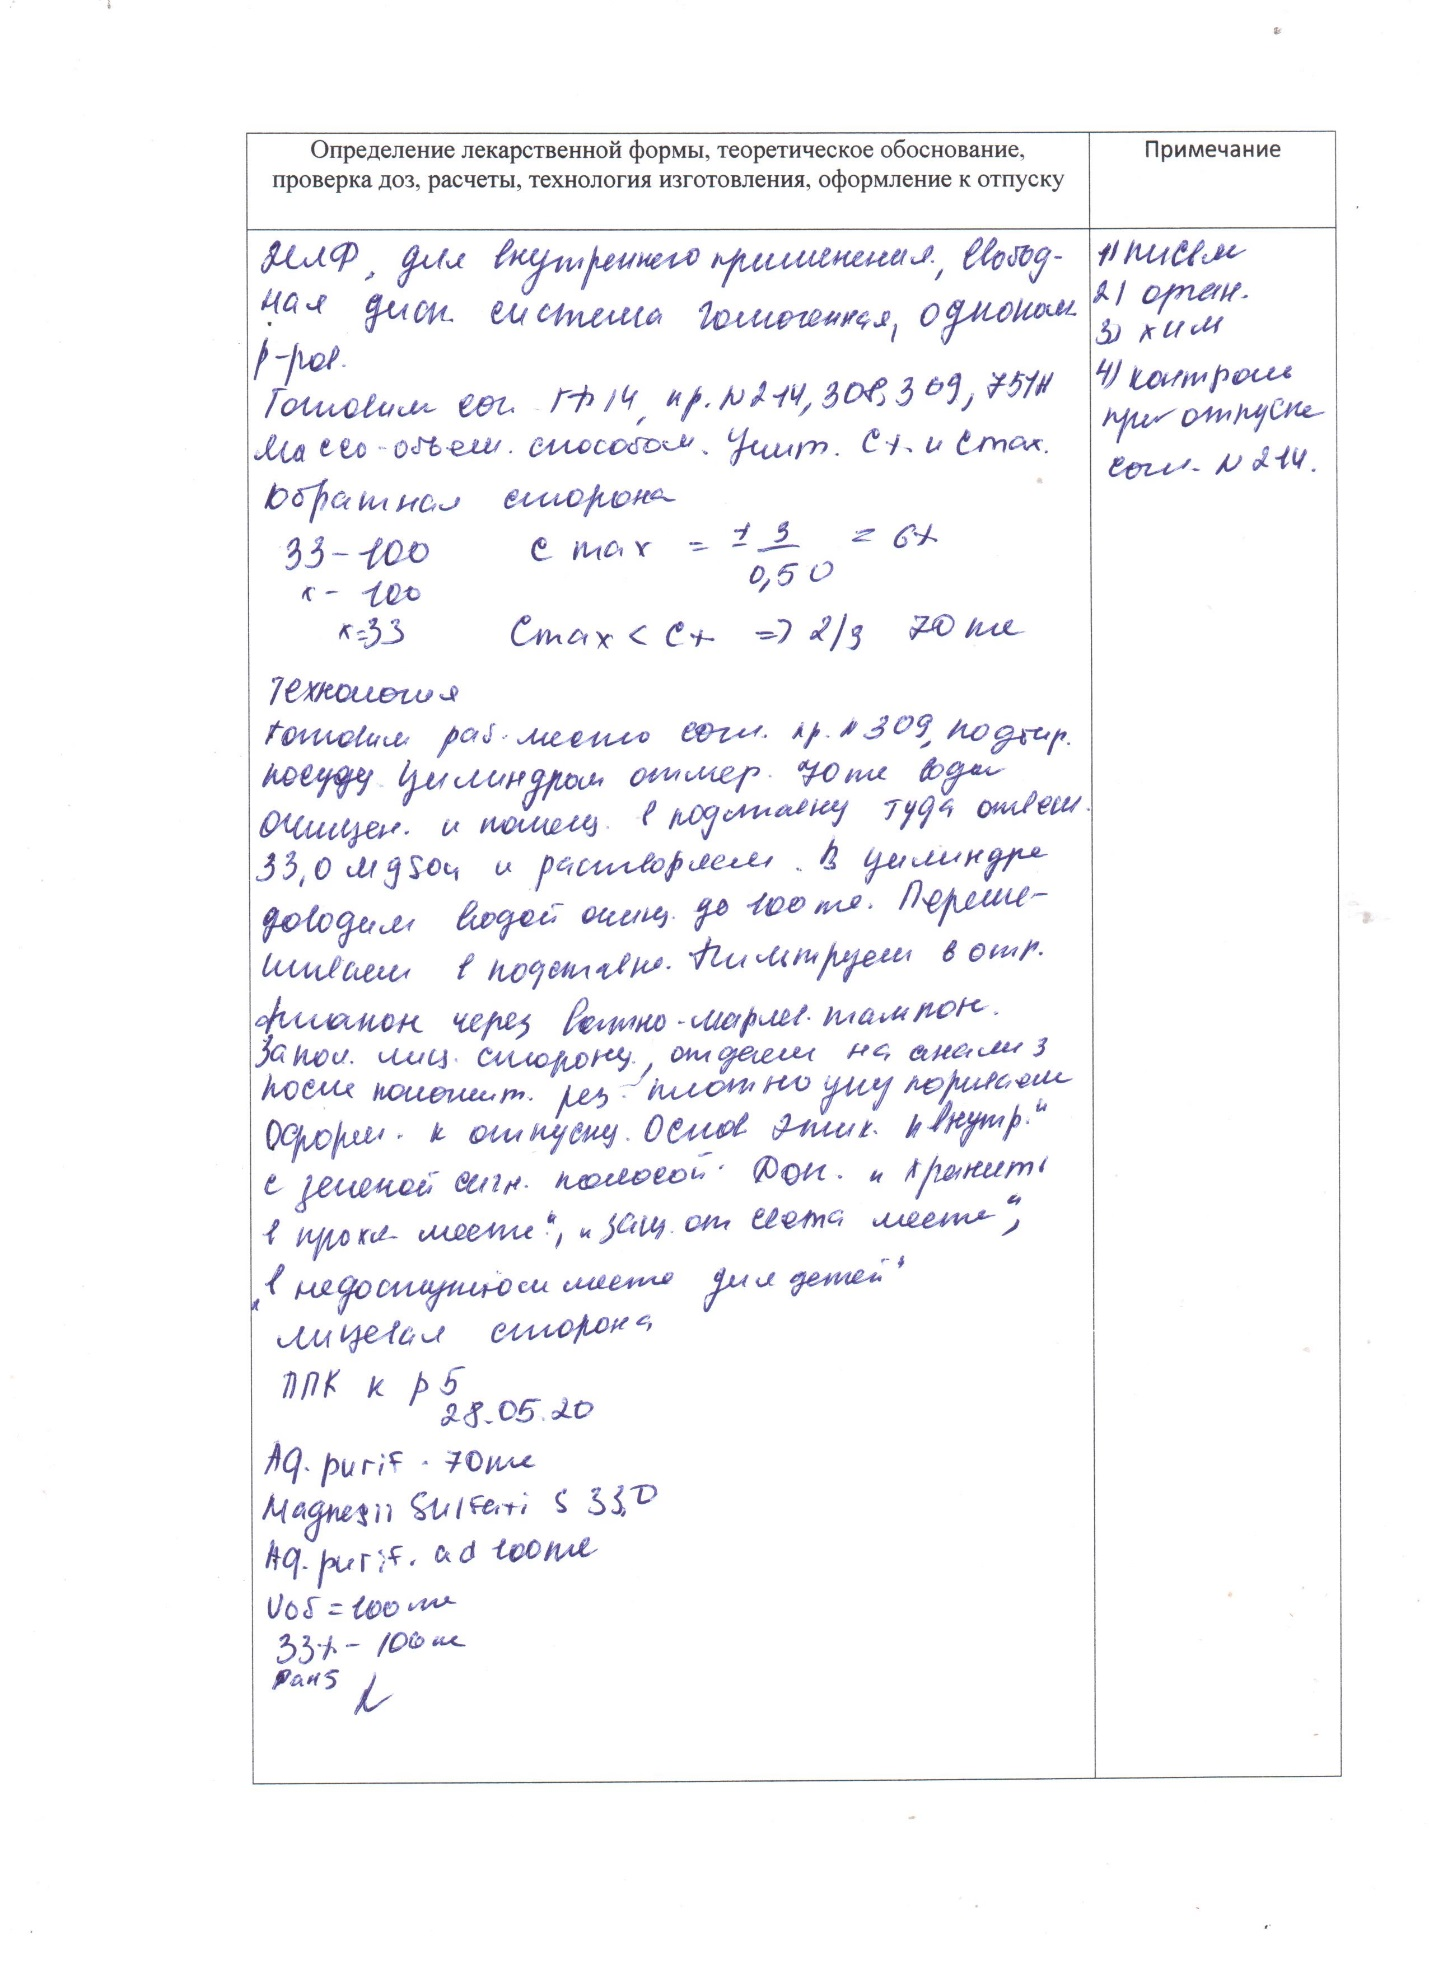 Определение лекарственной формы, теоретическое обоснование,
проверка доз, расчеты, технология изготовления, оформление к отпуску
Примечание
ЖЛФ, для внутреннего применения, свобод-
ная дисп. система гомогенная, одноком
р-ров.
Готовим сог. ГФ 14, пр. N 214, 308, 309, 751н
Массо-объем. способом. Учит. C% и Cmax.
Обратная сторона
33 - 100
x - 100
x=33
C max = ± 3 / 0,50 = 6%
Cmax < C% => 2/3 70 мл
Технология
Готовим раб. место согл. пр. N 309, подбир.
посуду. Цилиндром отмер. 70 мл воды
очищен. и помещ. в подставку туда отвеш.
33,0 MgSO4 и растворяем. В цилиндре
доводим водой очищ. до 100 мл. Переме-
шиваем в подставке. Фильтруем в отп.
флакон через ватно-марлев. тампон.
Запол. лиц. сторону, отдаем на анализ
после положит. рез плотно укупориваем
Оформ. к отпуску. Основ этик. „внутр."
с зеленой сигн. полосой. Доп. „хранить
в прохл. месте", „защ. от света месте",
„в недоступном месте для детей"
Лицевая сторона
ППК к р 5
28.05.20
Aq. purif. 70 мл
Magnesii Sulfati S 33,0
Aq. purif. ad 100 мл
Vоб = 100 мл
33% - 100 мл
1) письм
2) орган.
3) хим
4) контроль
при отпуске
согл. N 214.